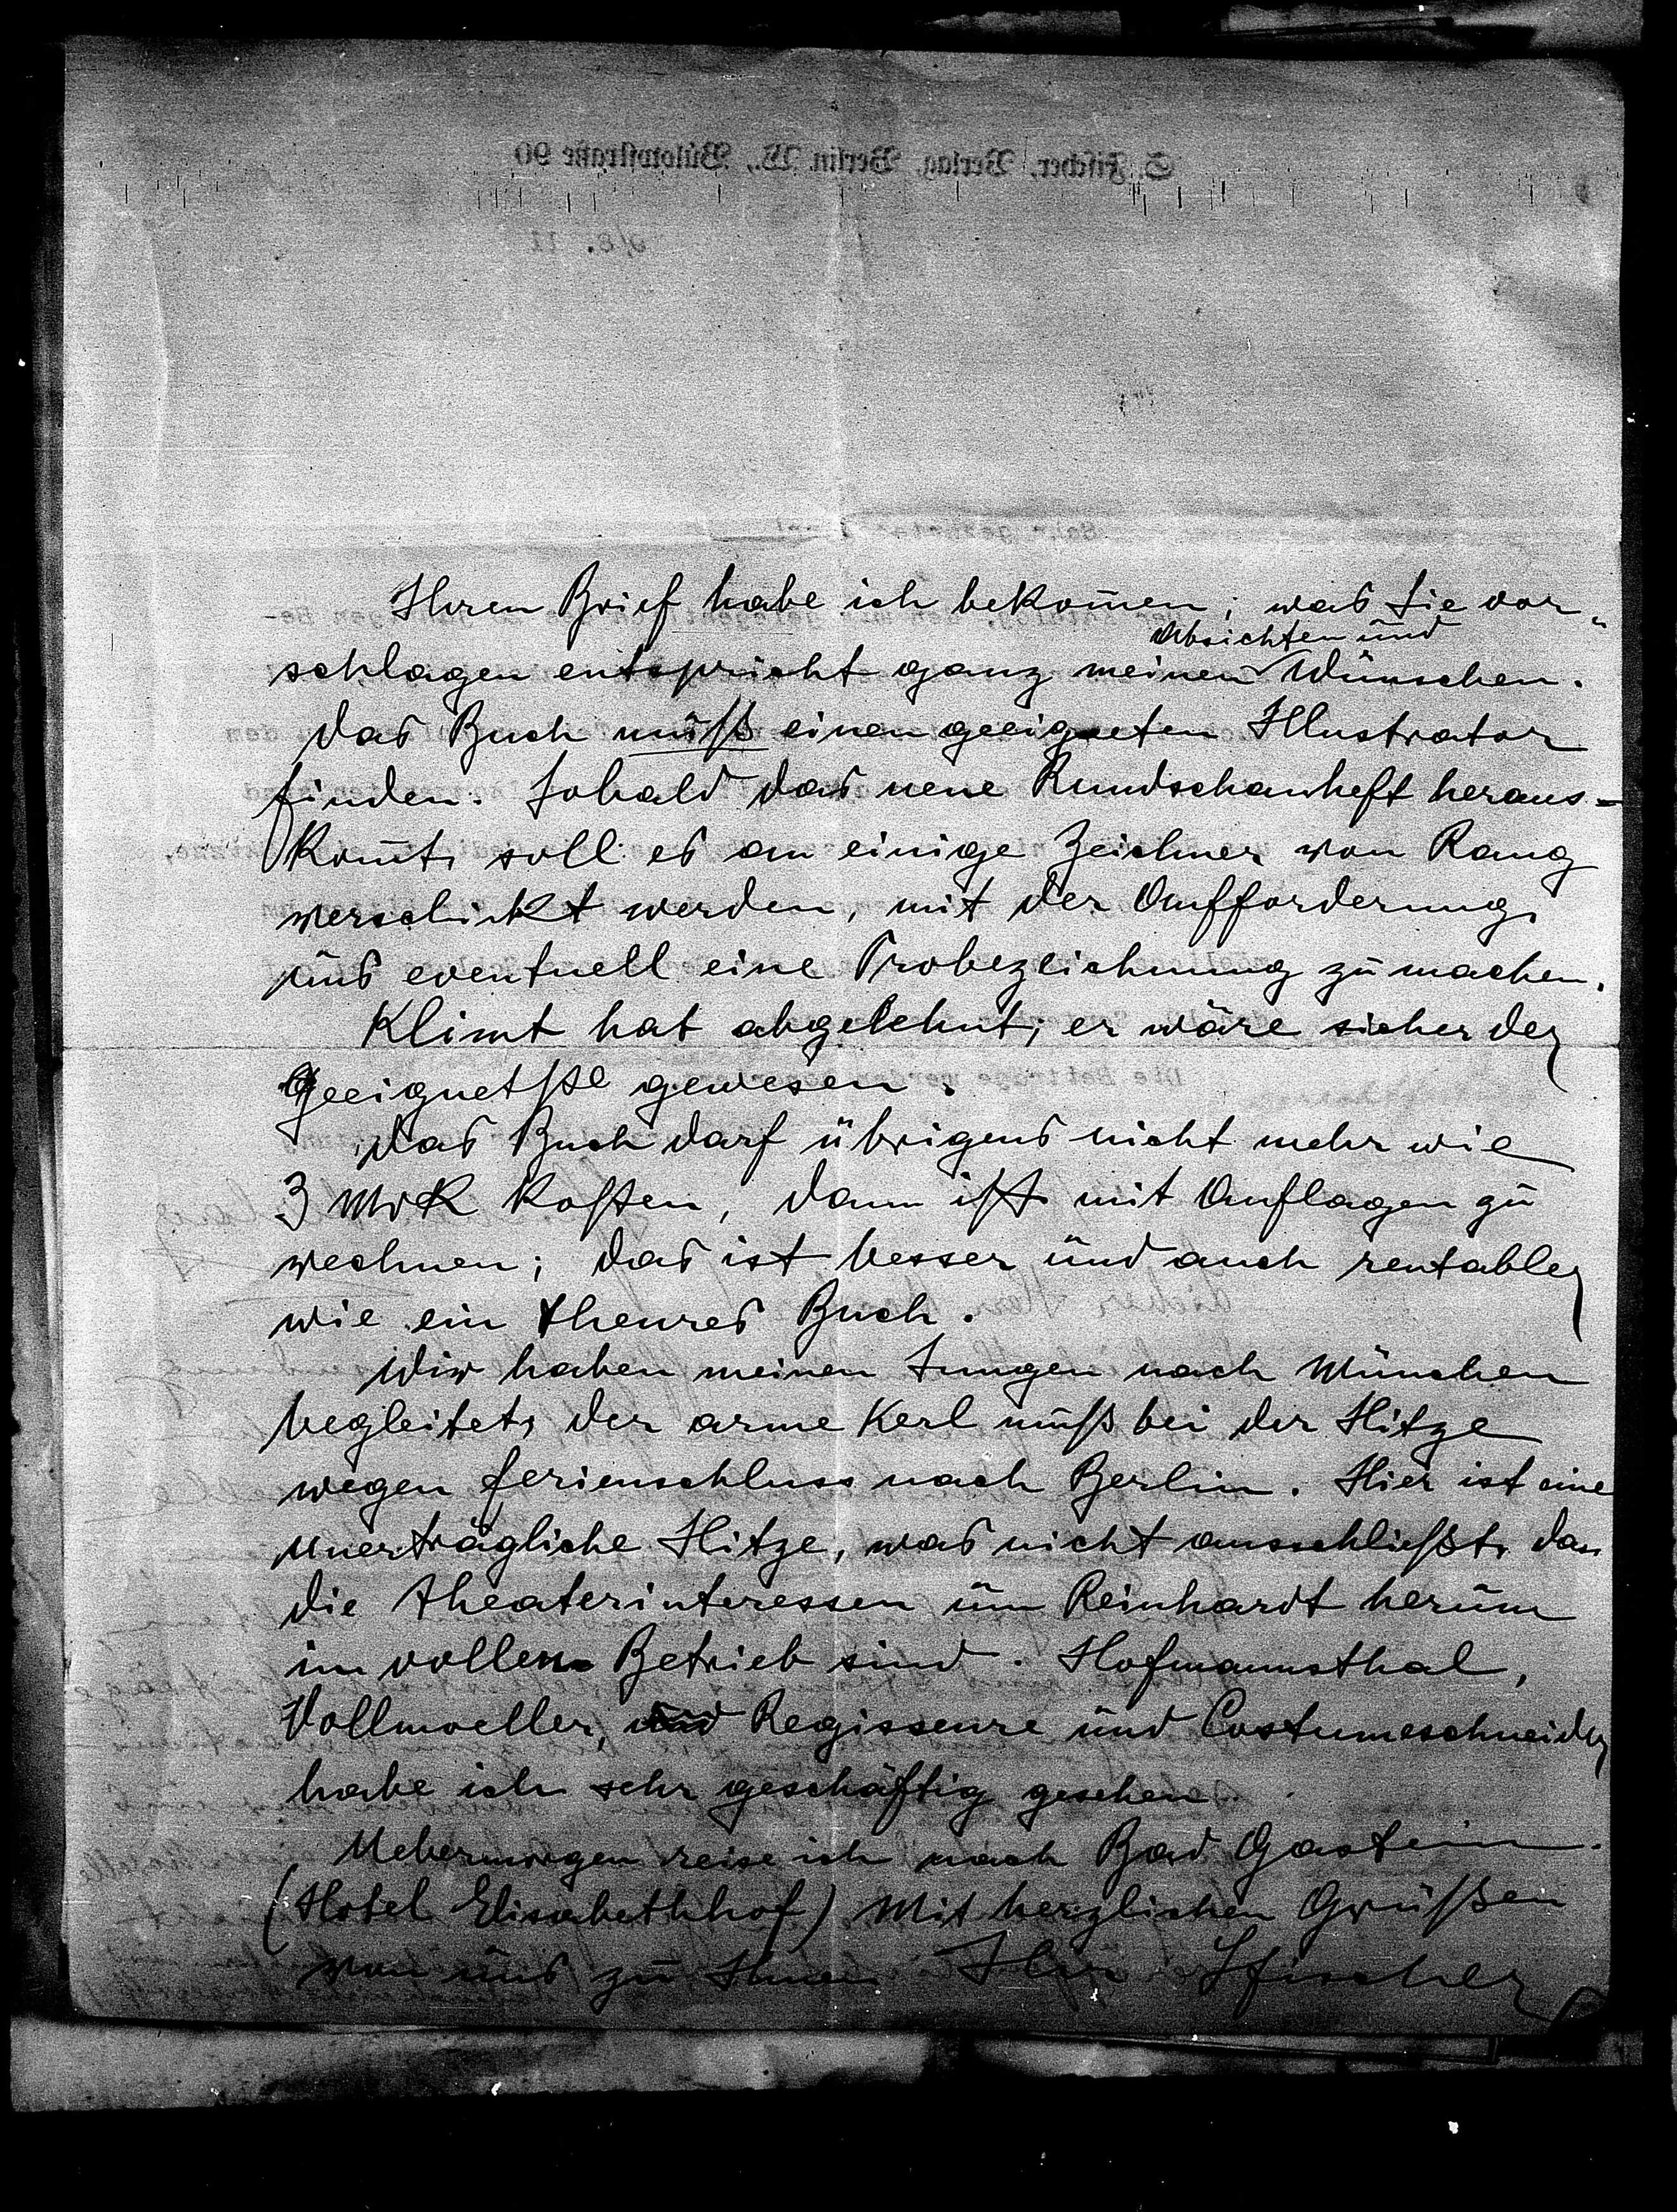 Ihren Brief habe ich bekom̄en; was Sie vor-
Absichten und
schlagen entspricht ganz meinen Wünschen.
Das Buch muß einen geeigneten Illustrator
finden. Sobald das neue Rundschauheft heraus-
kom̄t, soll es an einige Zeichner von Rang
verschickt werden, mit der Aufforderung,
uns eventuell eine Probezeichnung zu machen.
Klimt hat abgelehnt; er wäre sicher der
geeignetste gewesen.
Das Buch darf übrigens nicht mehr wie
3 Mrk kosten, dann ist mit Auflagen zu
rechnen; das ist besser und auch rentabler
wie ein theures Buch.
Wir haben meinen Jungen nach München
begleitet, der arme Kerl muß bei der Hitze
wegen Ferienschluss nach Berlin. Hier ist eine
unerträgliche Hitze, was nicht ausschließt, das
die Theaterinteressen um Reinhardt herum
im vollen Betrieb sind. Hofmannsthal,
Vollmoeller, und Regisseure und Costumeschneider
habe ich sehr geschäftig gesehen.
Uebermorgen reise ich nach Bad Gastein.
(Hotel Elisabethhof) Mit herzlichen Grüßen
von uns zu Ihnen Ihr SFischer